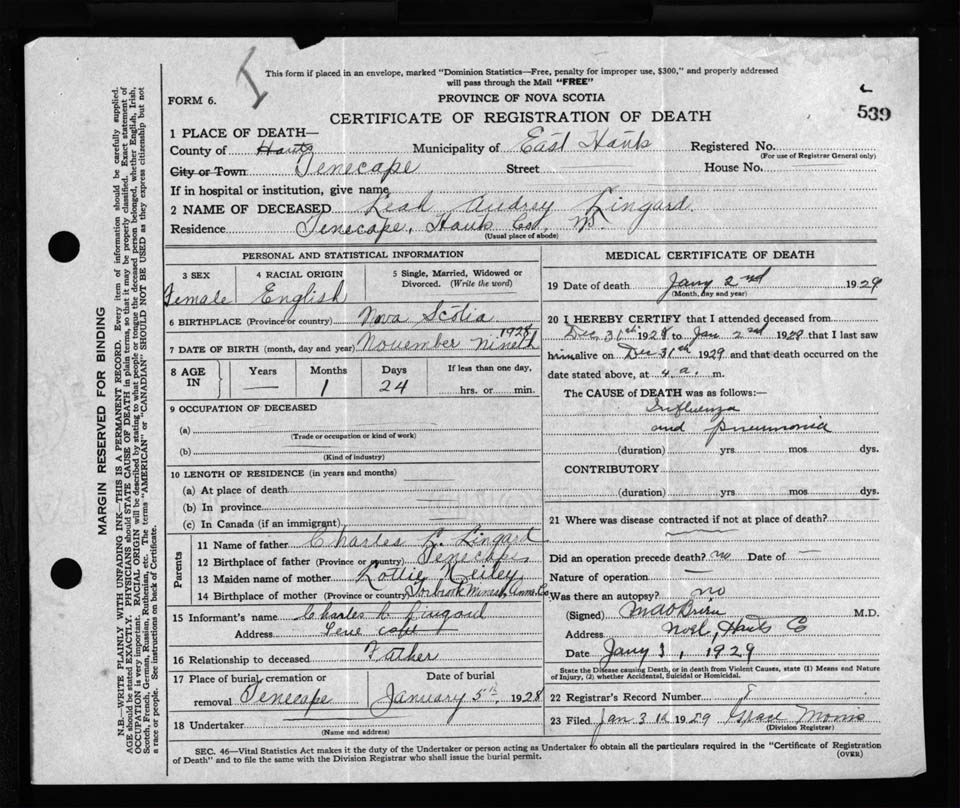 This form if placed in an envelope, marked "Dominion Statistics—Free, penalty for improper use, $300," and properly addressed
will pass through the Mail "FREE"
FORM 6.
PROVINCE OF NOVA SCOTIA
539
CERTIFICATE OF REGISTRATION OF DEATH
1 PLACE OF DEATH—
County of Hants Municipality of East Hants Registered No.
(For use of Registrar General only)
City or Town Tenecape Street House No.
If in hospital or institution, give name
2 NAME OF DECEASED Leah Audrey Lingard
Residence Tenecape, Hants Co., NS.
(Usual place of abode)
PERSONAL AND STATISTICAL INFORMATION
3 SEX 4 RACIAL ORIGIN 5 Single, Married, Widowed or Divorced. (Write the word)
Female English
6 BIRTHPLACE (Province or country) Nova Scotia
1928
7 DATE OF BIRTH (month, day and year) November nineth
8 AGE IN Years Months Days If less than one day,
— 1 24 hrs. or min.
9 OCCUPATION OF DECEASED
(a)
(Trade or occupation or kind of work)
(b)
(Kind of industry)
10 LENGTH OF RESIDENCE (in years and months)
(a) At place of death
(b) In province
(c) In Canada (if an immigrant)
Parents
11 Name of father Charles C. Lingard
12 Birthplace of father (Province or country) Tenecape
13 Maiden name of mother Lottie Neiley
14 Birthplace of mother (Province or country) Torbrook Mines, Anna. Co
15 Informant's name Charles C Lingard
Address Tene cape
16 Relationship to deceased Father
17 Place of burial, cremation or removal Tenecape Date of burial January 5th, 1928
18 Undertaker
(Name and address)
MEDICAL CERTIFICATE OF DEATH
19 Date of death Jany 2nd 1929
(Month, day and year)
20 I HEREBY CERTIFY that I attended deceased from
Dec 31th 1928 to Jan 2nd 1929 that I last saw
him alive on Dec 31th 1929 and that death occurred on the
date stated above, at 4 a. m.
The CAUSE of DEATH was as follows:—
Influenza
and pneumonia
(duration) yrs. mos. dys.
CONTRIBUTORY
(duration) yrs. mos. dys.
21 Where was disease contracted if not at place of death?
Did an operation precede death? no Date of —
Nature of operation —
Was there an autopsy? no
(Signed) M.D.
Address Noel, Hants Co
Date Jany 3, 1929
State the Disease causing Death, or in death from Violent Causes, state (1) Means and Nature
of Injury, (2) whether Accidental, Suicidal or Homicidal.
22 Registrar's Record Number
23 Filed Jan 3th 1929 Grace Morris
(Division Registrar)
SEC. 46—Vital Statistics Act makes it the duty of the Undertaker or person acting as Undertaker to obtain all the particulars required in the "Certificate of Registration
of Death" and to file the same with the Division Registrar who shall issue the burial permit.
(OVER)
MARGIN RESERVED FOR BINDING
N.B.—WRITE PLAINLY WITH UNFADING INK—THIS IS A PERMANENT RECORD. Every item of information should be carefully supplied.
AGE should be stated EXACTLY. PHYSICIANS should STATE CAUSE OF DEATH in plain terms, so that it may be properly classified. Exact statement of
OCCUPATION is very important. RACIAL ORIGIN will be described by stating to what people or tongue the deceased person belonged, whether English, Irish,
Scotch, French, German, Russian, Ruthenian, etc. The terms "AMERICAN" or "CANADIAN" SHOULD NOT BE USED as they express citizenship but not
a race or people. See instructions on back of Certificate.